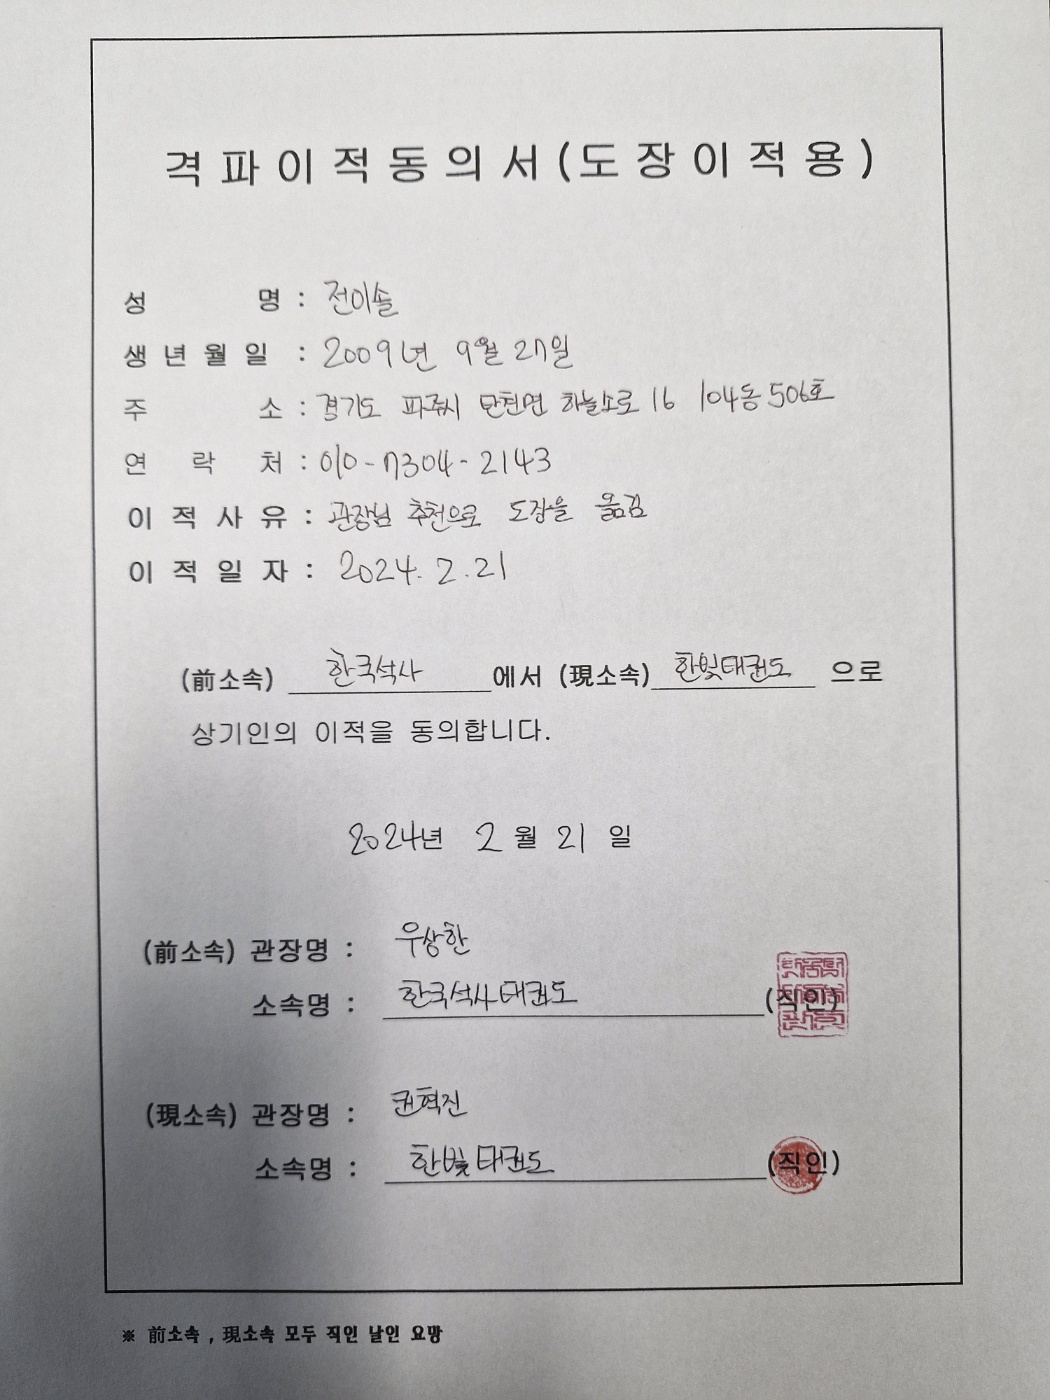 격파이적동의서(도장이적용)
성 명 : 전이솔
생년월일 : 2009년 9월 27일
주 소 : 경기도 파주시 탄현면 하늘소로 16 104동 506호
연 락 처 : 010-7304-2143
이적사유 : 관장님 추천으로 도장을 옮김
이적일자 : 2024. 2. 21
(前소속) 한국석사 에서 (現소속) 한빛태권도 으로
상기인의 이적을 동의합니다.
2024년 2월 21일
(前소속) 관장명 : 우상한
소속명 : 한국석사태권도 (직인)
(現소속) 관장명 : 권혁진
소속명 : 한빛태권도 (직인)
※ 前소속 , 現소속 모두 직인 날인 요망